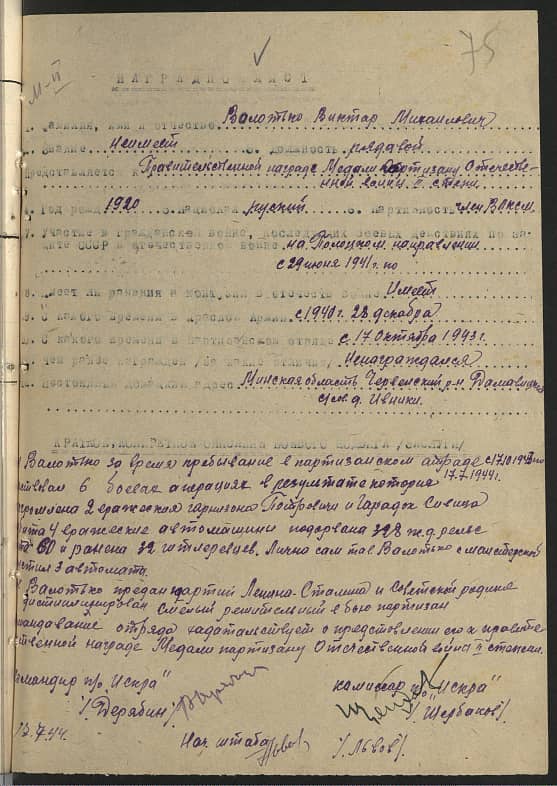 75
М-П
НАГРАДНОЙ ЛИСТ
1. Фамилия, имя и отчество Валотько Виктар Михайлович
2. Звание Неимеет 3. должность рядавой
Представляется к Правительственной награде Медали Партизану Отечестве-
нной войны II степени.
4. Год рожд. 1920 5. Национал. руский 6. Партийность член ВЛКСМ.
7. Участие в гражданской войне, последующих боевых действиях по за-
щите СССР и отечественной войне на Полоцком направлении
с 29 июня 1941 г. по
8. Имеет ли ранения и контузии в отечеств. войне Имеет
9. С какого времени в Красной Армии с 1940 г. 28 декабря
С какого времени в партизанском отряде с 17 октября 1943 г.
Чем ранее награжден /за какие отличия/ Ненаграждался
Постоянный домашний адрес Минская область Червенский р-н
с/сов. д. Ивники.
КРАТКОЕ, КОНКРЕТНОЕ ОПИСАНИЕ БОЕВОГО ПОДВИГА /ЗАСЛУГИ/
Валотько за время пребывание в партизанском атраде с 17.10.1943 по
17.7.1944 г.
6 боевых аперациях в результате которых
2 вражеския гарнизона Петровичи и Гарадок
4 вражеские автомашины подорвана 328 ж.д. рельс
60 и ранена 32 гитлеравцев. Лично сам тов Валотько
3 автомата.
Валотько предан партии Ленина-Сталина и Советской родине
дистиплинирован смелый решительный в бою партизан
командавание отряда хадатайствует о предствлении его к правите
ственной награде Медали партизану Отечественной войны II степени.
Командир п/о "Искра"
комисар п/о "Искра"
/Дерябин/
/Щербаков/.
.7.44.
Нач. штаба
/Львов/.